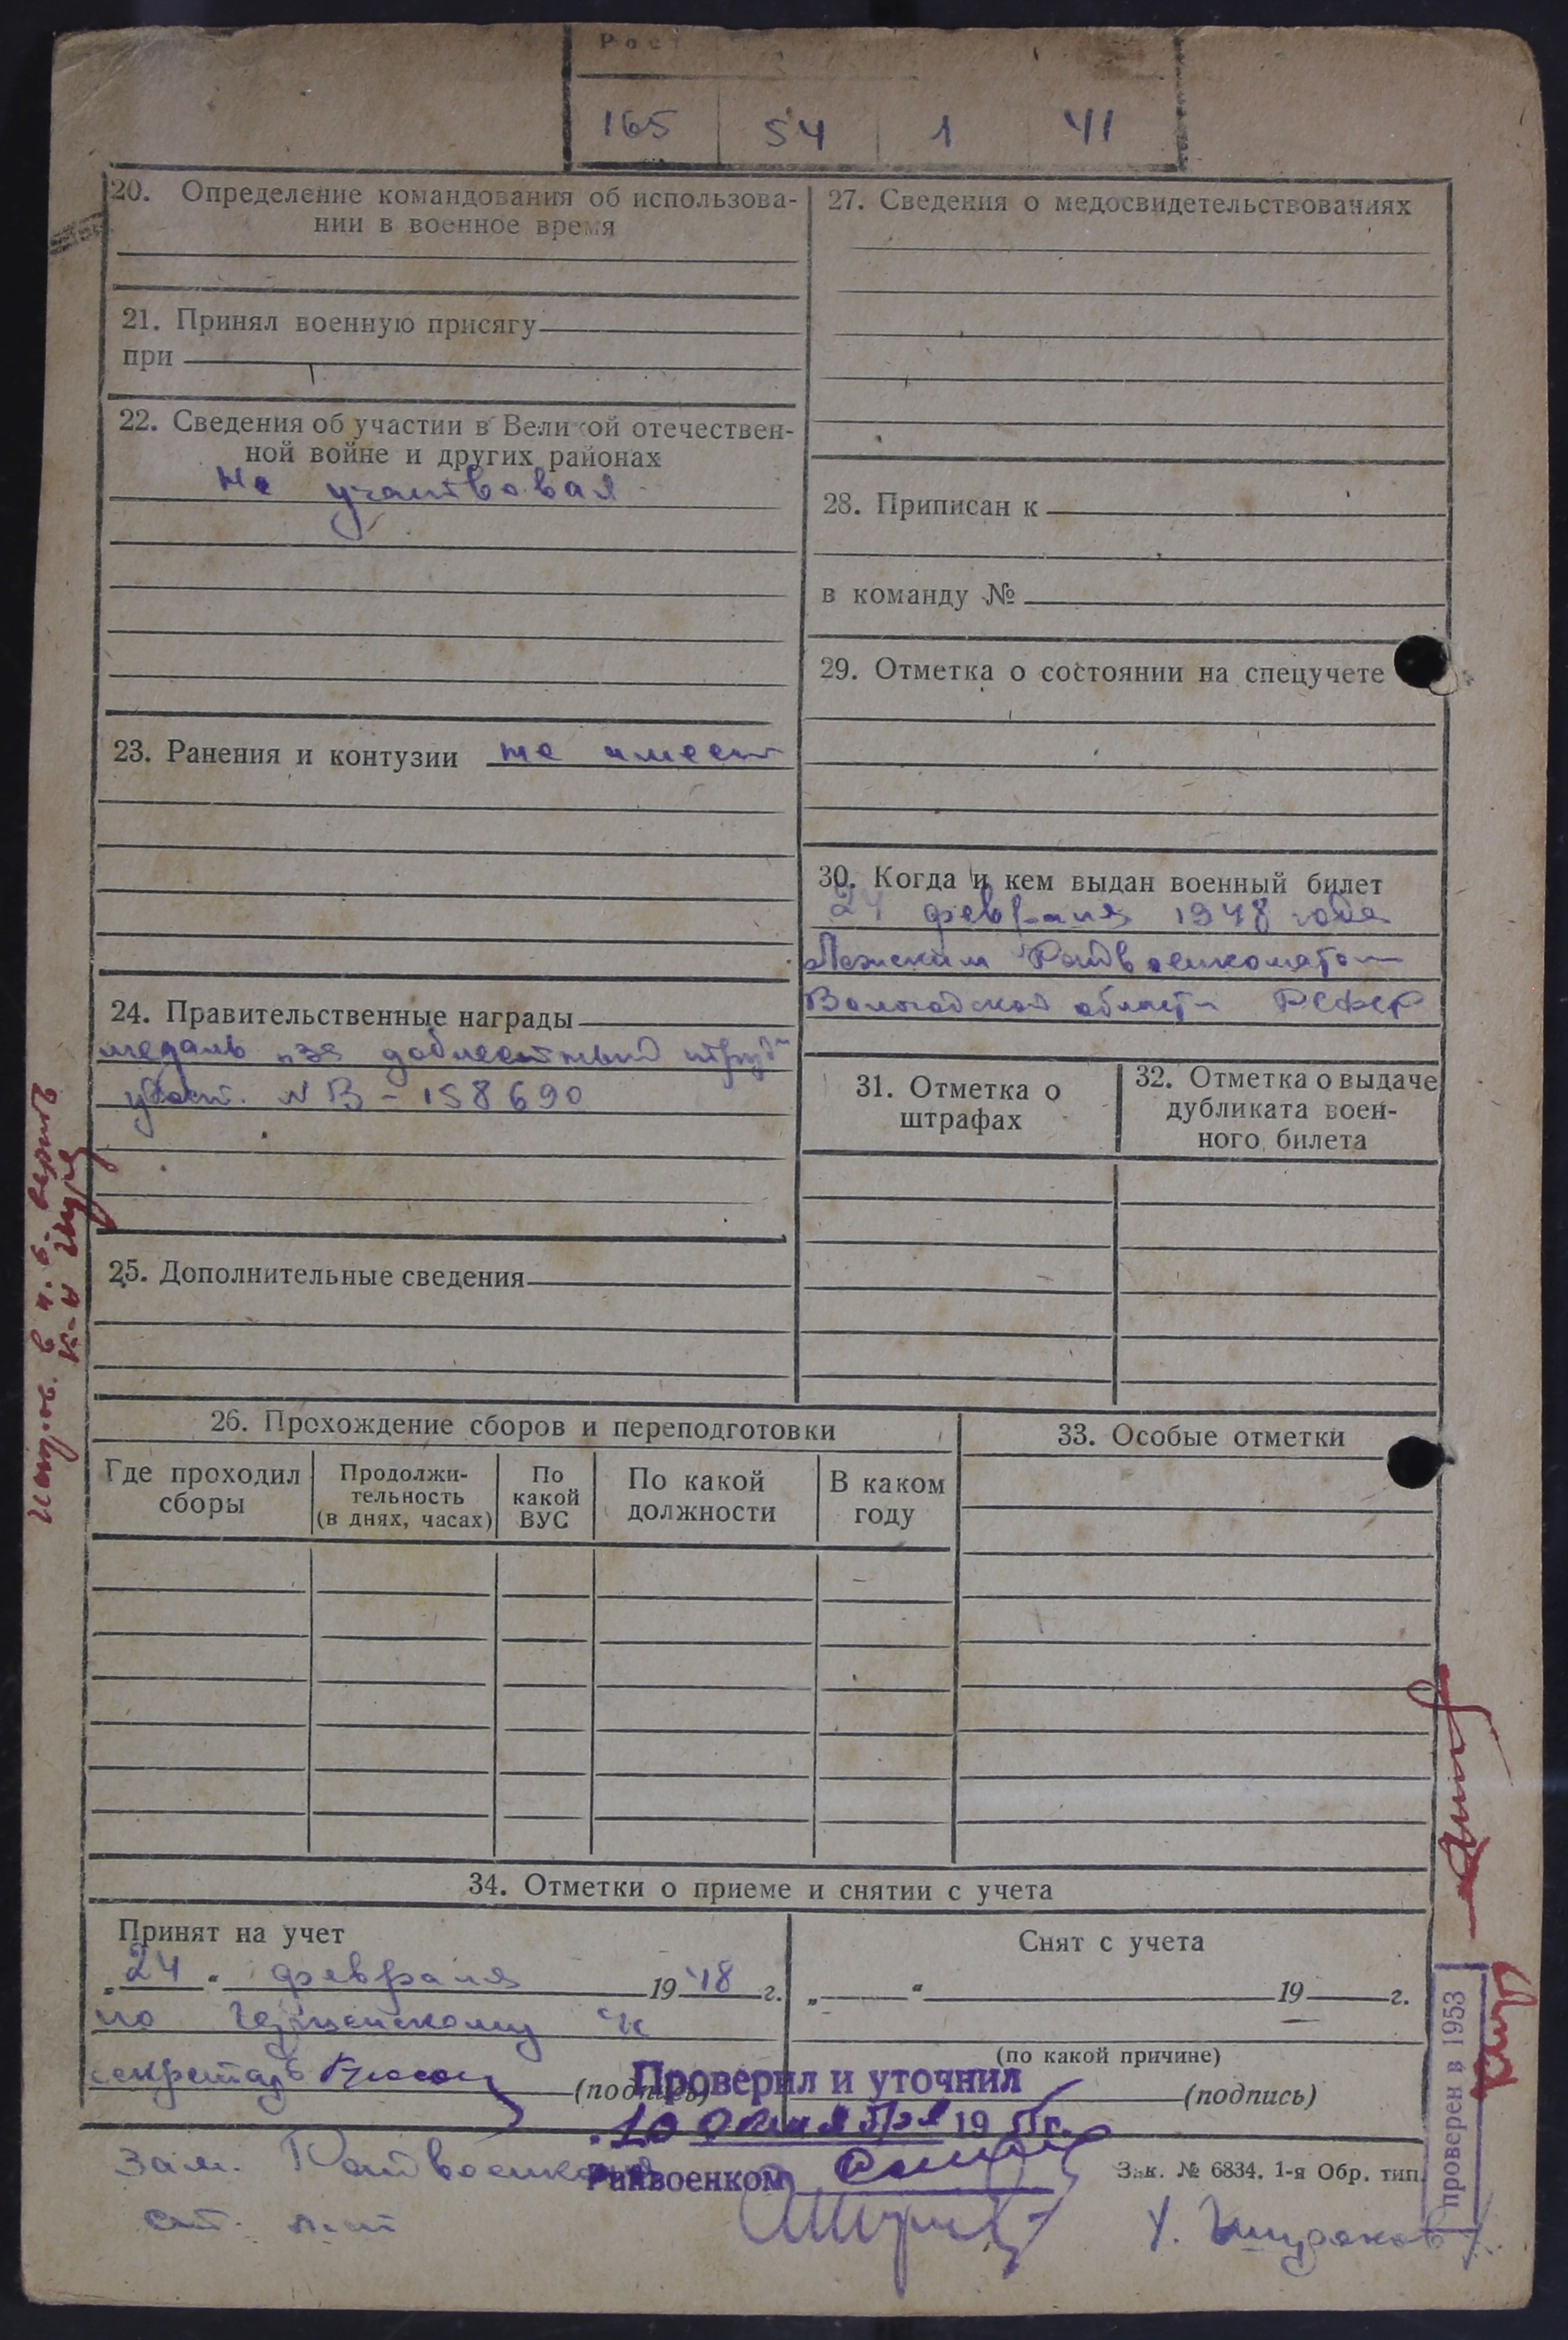 Рост
165 54 1 41
20. Определение командования об использова-
нии в военное время
21. Принял военную присягу
при
22. Сведения об участии в Великой отечествен-
ной войне и других районах
Не участвовал
23. Ранения и контузии не имеет
24. Правительственные награды
медаль „за доблестный труд"
удост. № В - 158690
25. Дополнительные сведения
27. Сведения о медосвидетельствованиях
28. Приписан к
в команду №
29. Отметка о состоянии на спецучете
30. Когда и кем выдан военный билет
24 февраля 1948 года
Лежским Райвоенкоматом
Вологодской области РСФСР
31. Отметка о
штрафах
32. Отметка о выдаче
дубликата воен-
ного билета
26. Прохождение сборов и переподготовки
Где проходил
сборы
Продолжи-
тельность
(в днях, часах)
По
какой
ВУС
По какой
должности
В каком
году
33. Особые отметки
34. Отметки о приеме и снятии с учета
Принят на учет
„24" февраля 1948 г.
по
секретарь
(подпись)
Снят с учета
„ " 19 г.
(по какой причине)
(подпись)
Проверил и уточнил
10 19 г.
Райвоенком
Зам. Райвоенкома
ст. л-нт
Зак. № 6834. 1-я Обр. тип.
проверен в 1953